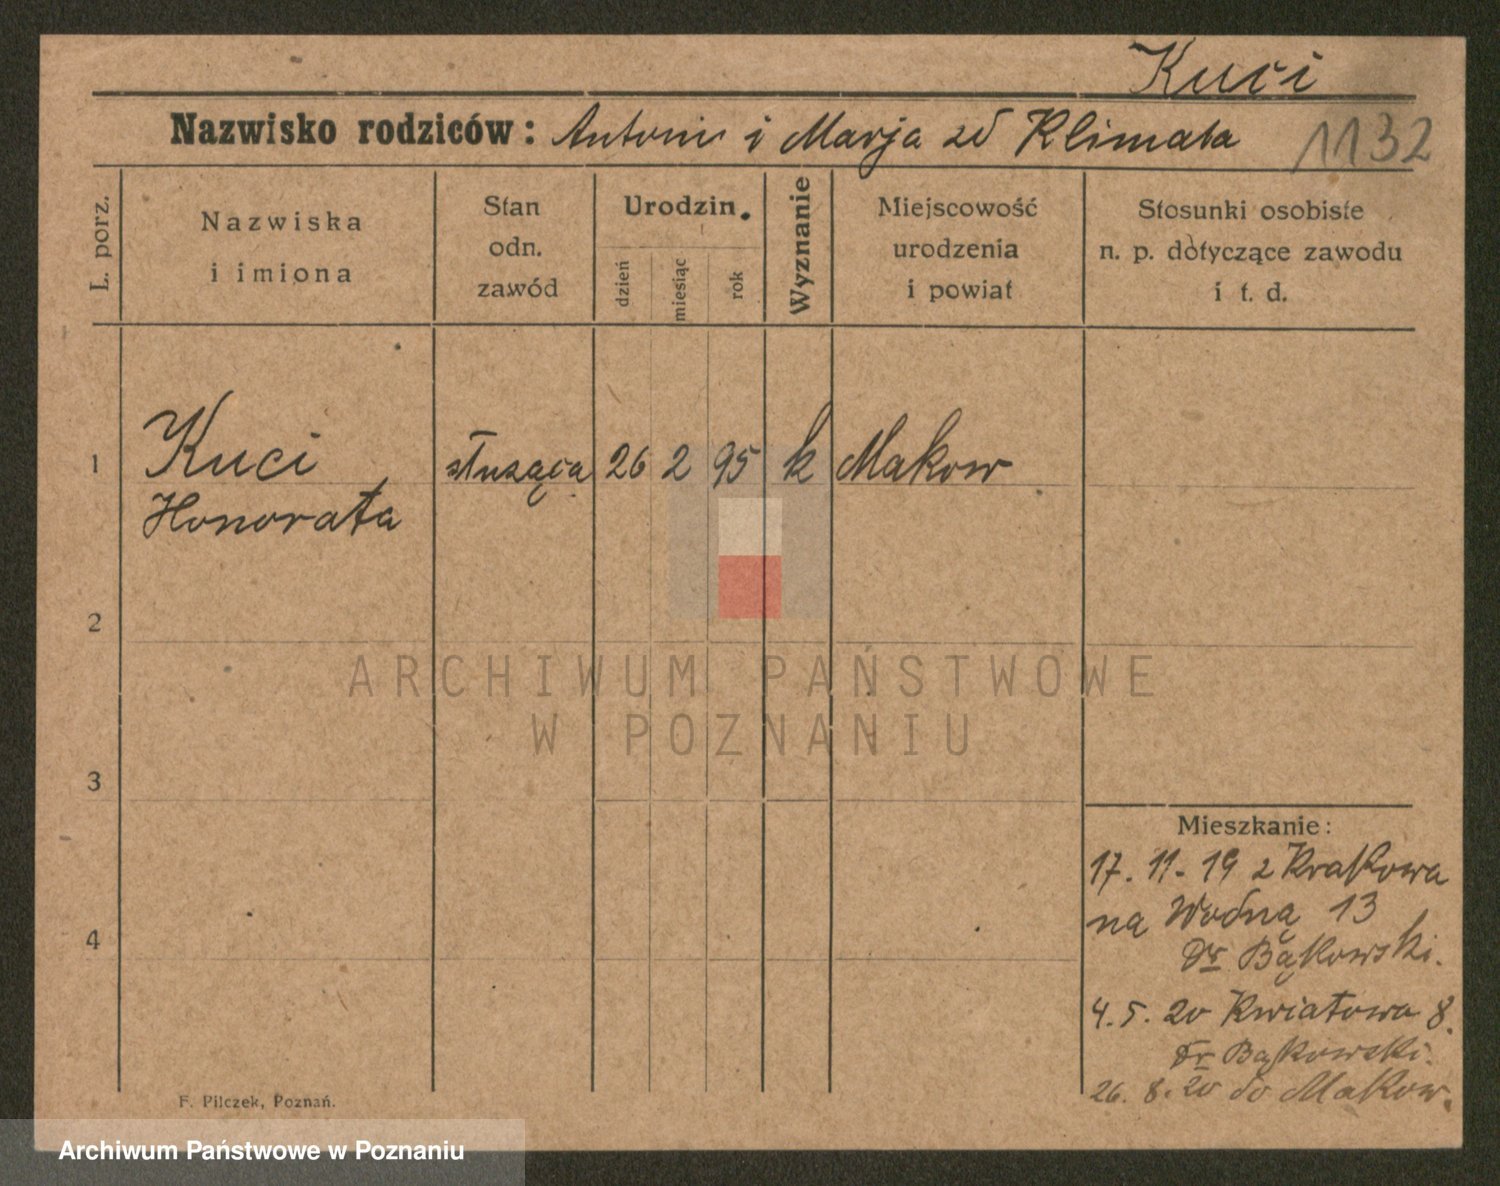 Kuci
Nazwisko rodziców: Antoni i Marja zd Klimala 1132
L. porz.
Nazwiska
i imiona
Stan
odn.
zawód
Urodzin.
dzień
miesiąc
rok
Wyznanie
Miejscowość
urodzenia
i powiat
Stosunki osobiste
n. p. dotyczące zawodu
i t. d.
1 Kuci służąca 26 2 95 k Makow
Honorata
2
3
4
Mieszkanie:
17. 11. 19 z Krakowa
na Wodną 13
Dr Bąkowski.
4. 5. 20 Kwiatowa 8.
Dr Bąkowski.
26. 8. 20 do Makow.
F. Pilczek, Poznań.
ARCHIWUM PAŃSTWOWE
W POZNANIU
Archiwum Państwowe w Poznaniu